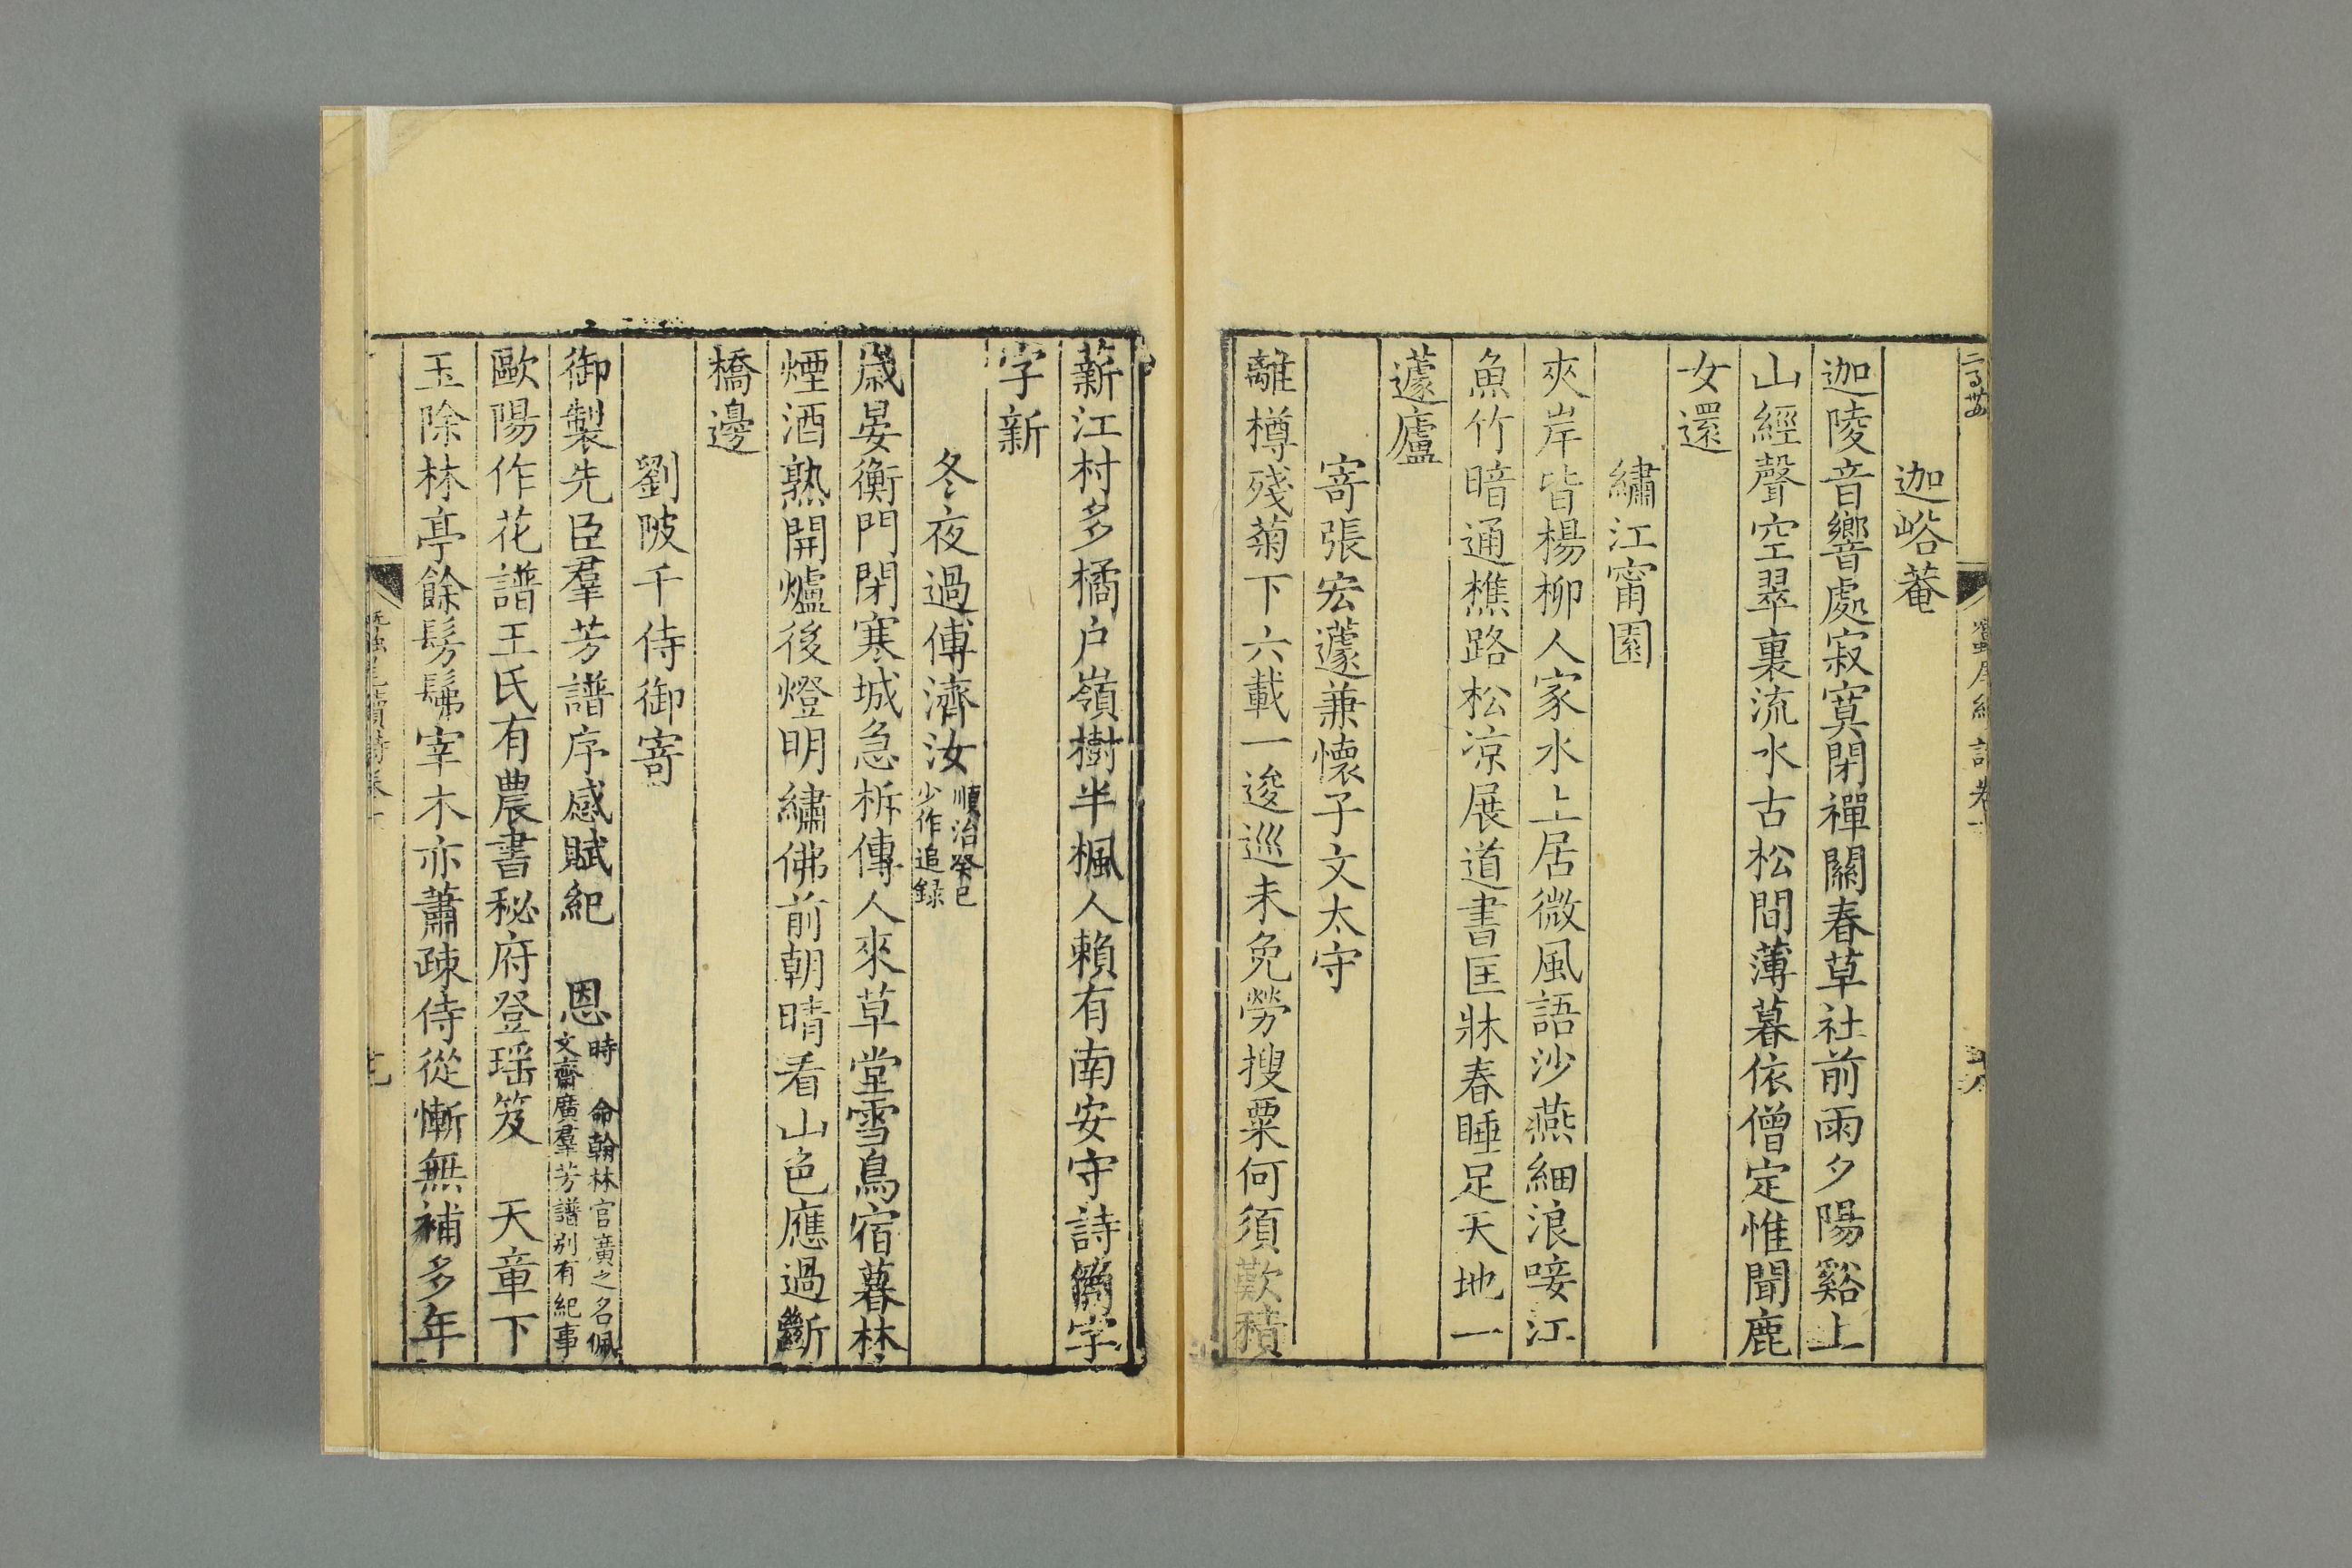 迦峪菴
迦陵音響處寂寞閉禪關春草社前雨夕陽谿上
山經聲空翠裏流水古松間薄暮依僧定惟聞鹿
女還
繡江甯園
夾岸皆楊柳人家水上居微風語沙燕細浪唼江
魚竹暗通樵路松涼展道書匡牀春睡足天地一
蘧廬
寄張宏蘧兼懷子文太守
離樽殘菊下六載一逡巡未免勞搜粟何須歎積
薪江村多橘户嶺樹半楓人賴有南安守詩篇字
字新
冬夜過傅濟汝順治癸巳少作追録
歲晏衡門閉寒城急柝傳人來草堂雪鳥宿暮林
煙酒熟開爐後燈明繡佛前朝晴看山色應過斷
橋邊
劉陂千侍御寄
御製先臣羣芳譜序感賦紀　恩時　命翰林官廣之名佩文齋廣羣芳譜别有紀事
歐陽作花譜王氏有農書秘府登瑶笈　天章下
玉除林亭餘髣髴宰木亦蕭疎侍從慚無補多年